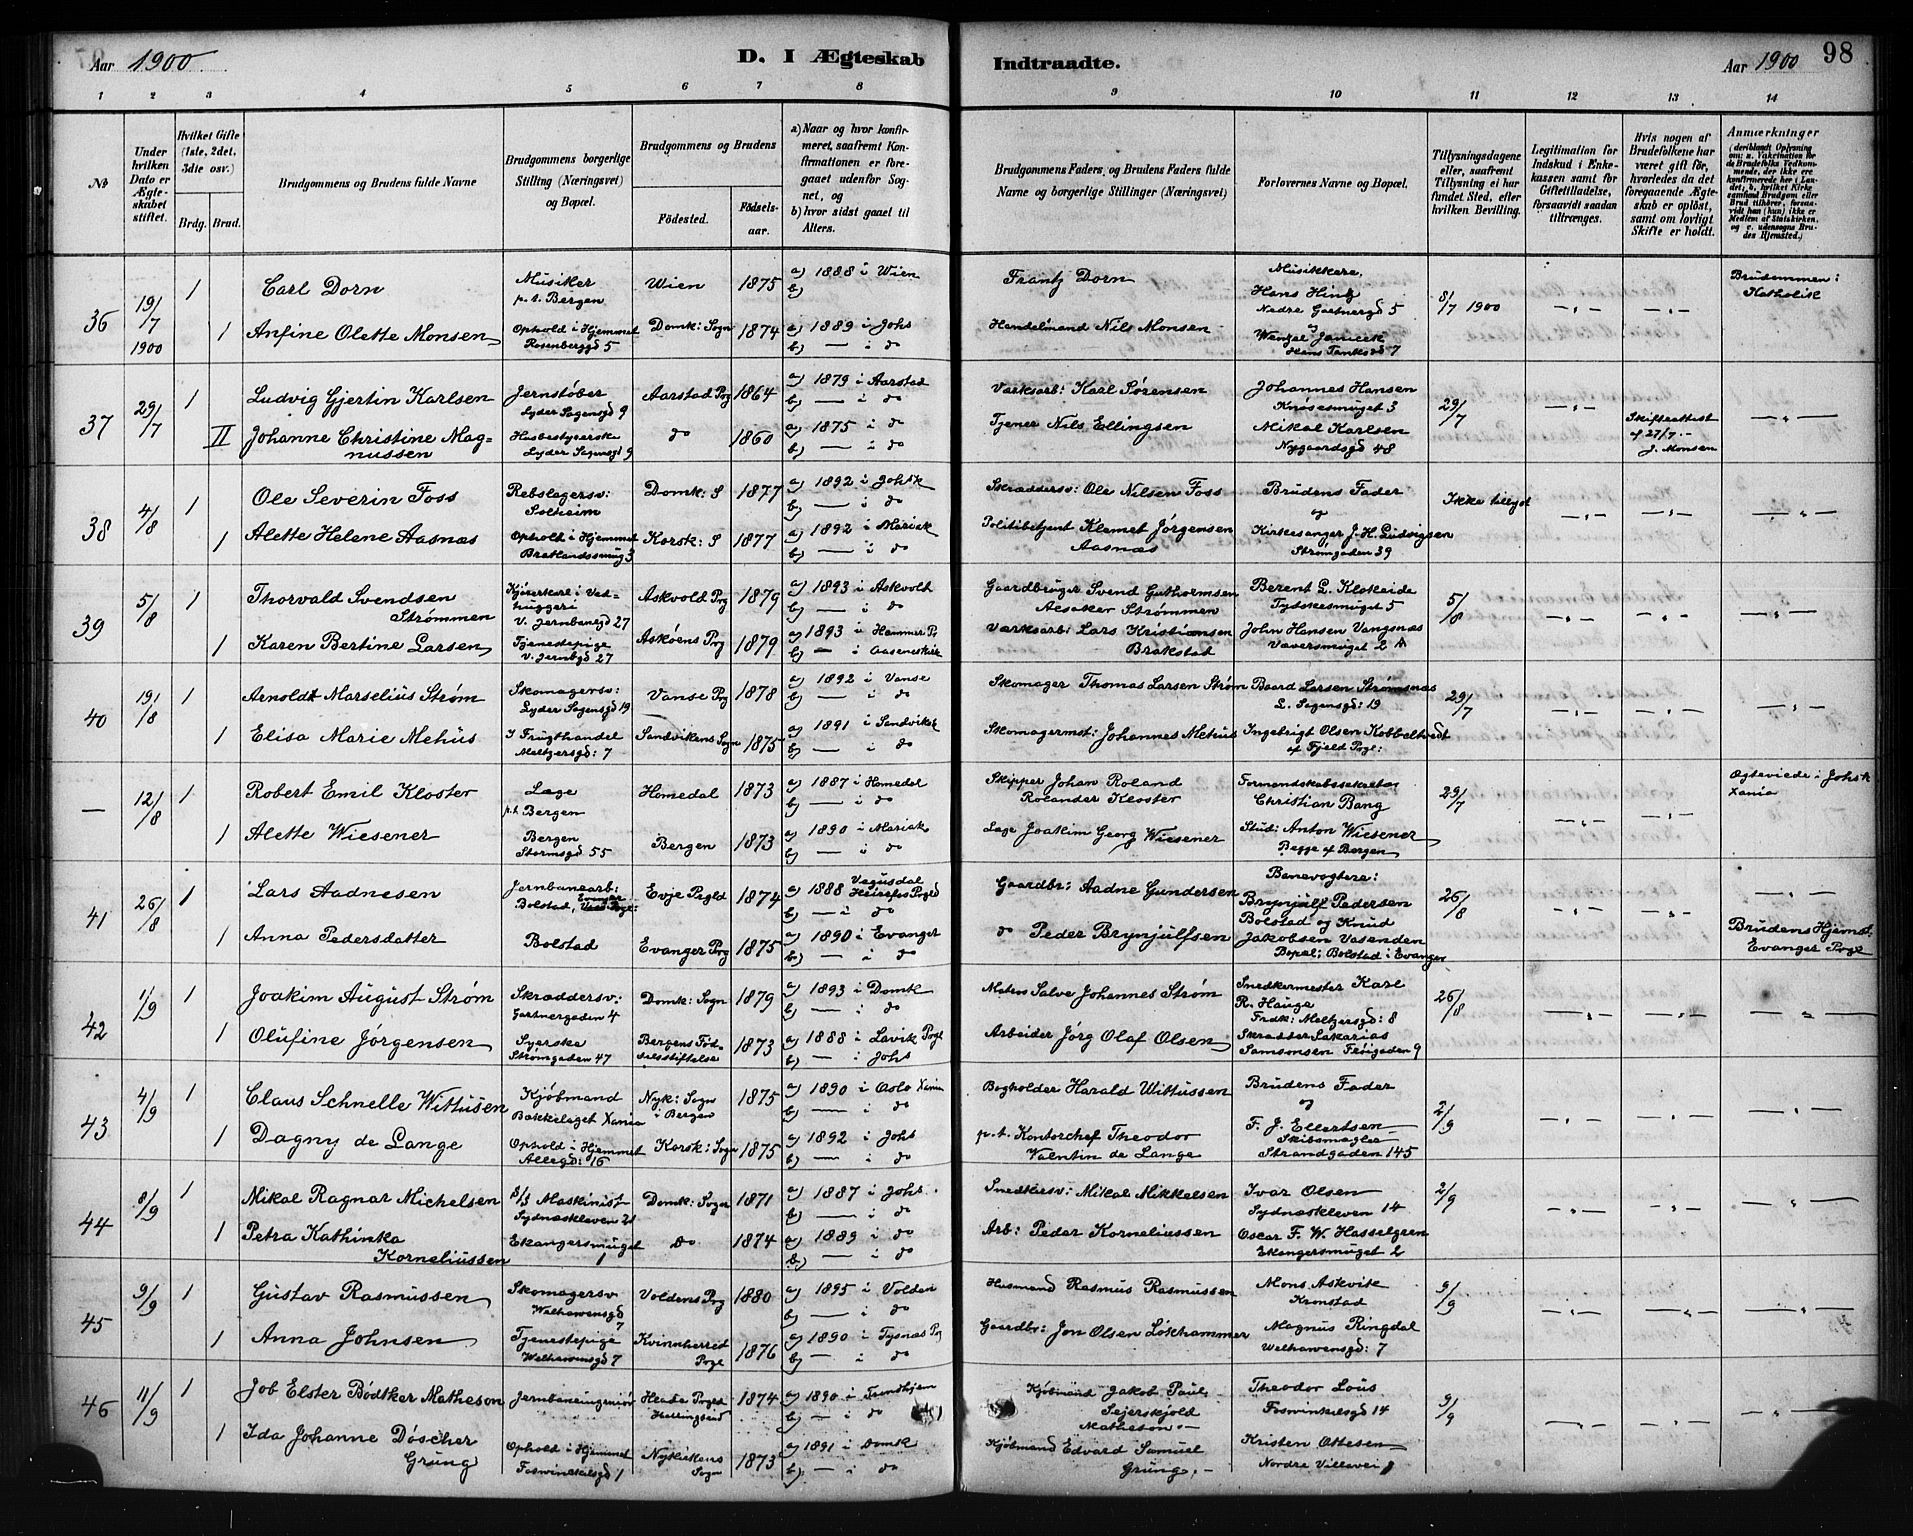 Aar 1900. D. I Ægteskab Indtraadte. Aar 1900 98
1 2 3 4 5 6 7 8 9 10 11 12 13 14
№
Under hvilken Dato er Ægteskabet stiftet.
Hvilket Gifte (1ste, 2det, 3die osv.)
Brdg. Brud.
Brudgommens og Brudens fulde Navne
Brudgommens borgerlige Stilling (Næringsvei) og Bopæl.
Brudgommens og Brudens
Fødested. Fødsels-aar.
a) Naar og hvor konfirmeret, saafremt Konfirmationen er foregaaet udenfor Sognet, og
b) hvor sidst gaaet til Alters.
Brudgommens Faders, og Brudens Faders fulde Navne og borgerlige Stillinger (Næringsvei)
Forlovernes Navne og Bopæl.
Tillysningsdagene eller, saafremt Tillysning ei har fundet Sted, efter hvilken Bevilling.
Legitimation for Indskud i Enkekassen samt for Giftetilladelse, forsaavidt saadan tiltrænges.
Hvis nogen af Brudefolkene har været gift før, hvorledes da det foregaaende Ægteskab er opløst, samt om lovligt Skifte er holdt.
Anmærkninger (deriblandt Oplysning om: a. Vakcination for de Brudefolks Vedkommende, der ikke ere konfirmerede her i Landet; b. hvilket Kirkesamfund Brudgom eller Brud tilhører, forsaavidt han (hun) ikke er Medlem af Statskirken, og c. udensogns Brudes Hjemsted.)
36 19/7 1900 1 Carl Dorn Musiker p.t. Bergen Wien 1875 a) 1888 i Wien b) Frantz Dorn Musikkere, Hans Hintz Nedre Gartnergd 5 8/7 1900 —"— —"— Brudgommen: Katholik
1 Anfine Olette Monsen Ophold i Hjemmet Rosenberggd 5 Domk: Sogn 1874 a) 1889 i Johs b) — i do Handelmand Nils Monsen og Wenzel Janicek Hans Tanksgd 7
37 29/7 1 Ludvig Gjertin Karlsen Jernstøber Lyder Sagensgd 9 Aarstad Prg 1864 a) 1879 i Aarstad b) — i do Værksarb: Karl Sørensen Johannes Hansen Knøsesmuget 3 29/7 —"— Skifteattest af 27/7.- J. Monsen —"—
II Johanne Christine Magnussen Husbestyrerske Lyder Sagensgd 9 do 1860 a) 1875 i do b) — i do Tjener Nils Ellingsen Mikal Karlsen Nygaardsgd 48
38 4/8 1 Ole Severin Foss Rebslagersv: Solheim Domk: S 1877 a) 1892 i Johsk b) — i do Skræddersv: Ole Nilsen Foss Brudens Fader Ikke tillyst —"— —"— —"—
1 Alette Helene Aasnæs Ophold i Hjemmet Bratlandssmug 3 Korsk: S 1877 a) 1892 i Mariak b) — i do Politibetjent Klemet Jörgensen Aasnæs og Kirkesanger J. H. Ludvigsen Strömgaden 39
39 5/8 1 Thorvald Svendsen Strømmen Kjörerkarl i Vedhuggeri V. Jernbanegd 27 Askvold Prg 1879 a) 1893 i Askvold b) — i do Gaardbruger Svend Guthormsen Aesaker Strømmen Berent L. Klokeide Tydskesmuget 5 5/8 —"— —"— —"—
1 Karen Bertine Larsen Tjenestepige V. Jernbgd 27 Askøens Prg 1879 a) 1893 i Hammer P b) — i Aasenes kirke Værksarb: Lars Kristiansen Brakstad John Hansen Vangsnæs Væversmuget 2 A
40 19/8 1 Arnoldt Marselius Strøm Skomagersv: Lyder Sagensgd 19 Vanse Prg 1878 a) 1892 i Vanse b) — i do Skomager Thomas Larsen Strøm Baard Larsen Strømsnæs L. Sagensgd: 19 29/7 —"— —"— —"—
1 Elisa Marie Mehus I Frugthandel Meltzersgd: 7 Sandvikens Sogn 1875 a) 1891 i Sandvikk b) — i do Skomagermst: Johannes Mehus Ingebrigt Olsen Kobbeltvedt af Fjeld Prgl:
— 12/8 1 Robert Emil Kloster Læge p.t. Bergen Homedal 1873 a) 1887 i Homedal b) — i do Skipper Johan Roland Rolander Kloster Formandskabssekretær Christian Bang 29/7 —"— —"— Ægteviede i Johsk Xania
1 Alette Wiesener Bergen Stormsgd 55 Bergen 1873 a) 1890 i Mariak b) — i do Læge Joakim Georg Wiesener Stud: Anton Wiesener Begge af Bergen
41 26/8 1 Lars Aadnesen Jernbanearb: Bolstad, Evanger Prgl: Evje Prgld 1874 a) 1888 Vegusdal Prgld b) — i do Gaardbr: Aadne Gundersen Benevogtere: Brynjulf Pedersen Bolstad og Knud 26/8 —"— —"— —"—
1 Anna Pedersdatter Bolstad Evanger Prg 1875 a) 1890 i Evanger b) — i do do Peder Brynjulfsen Jakobsen Vasenden Bopæl: Bolstad i Evanger Brudens Hjemst: Evanger Prgl
42 1/9 1 Joakim August Strøm Skræddersv: Gartnergaden 4 Domk: Sogn 1879 a) 1893 i Domk b) — i do Matros Salve Johannes Strøm Snedkermester Karl R. Hauge Fredk: Meltzersgd: 8 26/8 —"— —"— —"—
1 Olufine Jörgensen Syerske Strömgaden 47 Bergens Fødselsstiftelse 1873 a) 1888 i Lavik Prgl b) — i Johs Arbeider Jörg Olaf Olsen Skrædder Sakarias Samsonsen Frøigaden 9
43 4/9 1 Claus Schnelle Wittusen Kjöbmand Bakkelaget Xania Nyk: Sogn i Bergen 1875 a) 1890 i Oslo Xania b) — i do Bogholder Harald Wittussen Brudens Fader 2/9 —"— —"— —"—
1 Dagny de Lange Ophold i Hjemmet Allegd: 16 Korsk: Sogn 1875 a) 1892 i Johs b) — i do p.t. Kontorchef Theodor Valentin de Lange og F. J. Ellertsen Skibsmægler Strandgaden 145
44 8/9 1 Mikal Ragnar Michelsen Maskinist Sydnæskleven 21 Domk: Sogn 1871 a) 1887 i Johs b) — i do Snedkersv: Mikal Mikkelsen Ivar Olsen Sydnæskleven 14 2/9 —"— —"— —"—
1 Petra Kathinka Korneliussen Ekangersmuget 1 do 1874 a) 1889 i do b) — i do Arb: Peder Korneliussen Oscar F. W. Hasselgren Ekangersmuget 2
45 9/9 1 Gustav Rasmussen Skomagersv Welhavensgd 7 Voldens Prg 1880 a) 1895 i Volden b) — i do Husmand Rasmus Rasmussen Mons Askvik Kronstad 9/9 —"— —"— —"—
1 Anna Johnsen Tjenestepige Welhavensgd 7 Kvinnherred Prgl 1876 a) 1890 i Tysnæs Prg b) — i do Gaardbr: Jon Olsen Løkhammer Magnus Ringdal Welhavensgd: 7
46 11/9 1 Job Elster Bødtker Matheson Jernbaneingeniör Prgld 1874 a) 1890 i Trondhjem b) — i do Kjöbmand Jakob Paul Sejerskjold Matheson Theodor Lous Foswinkelsgd 14 9/9 —"— —"— —"—
1 Ida Johanne Döscher Grung Ophold i Hjemmet Foswinkelsgd 1 Nykirkens Sogn 1873 a) 1891 i Domk b) — i do Kjöbmand Edvard Samuel Grung.- Kristen Ottesen Nordre Villavei 8